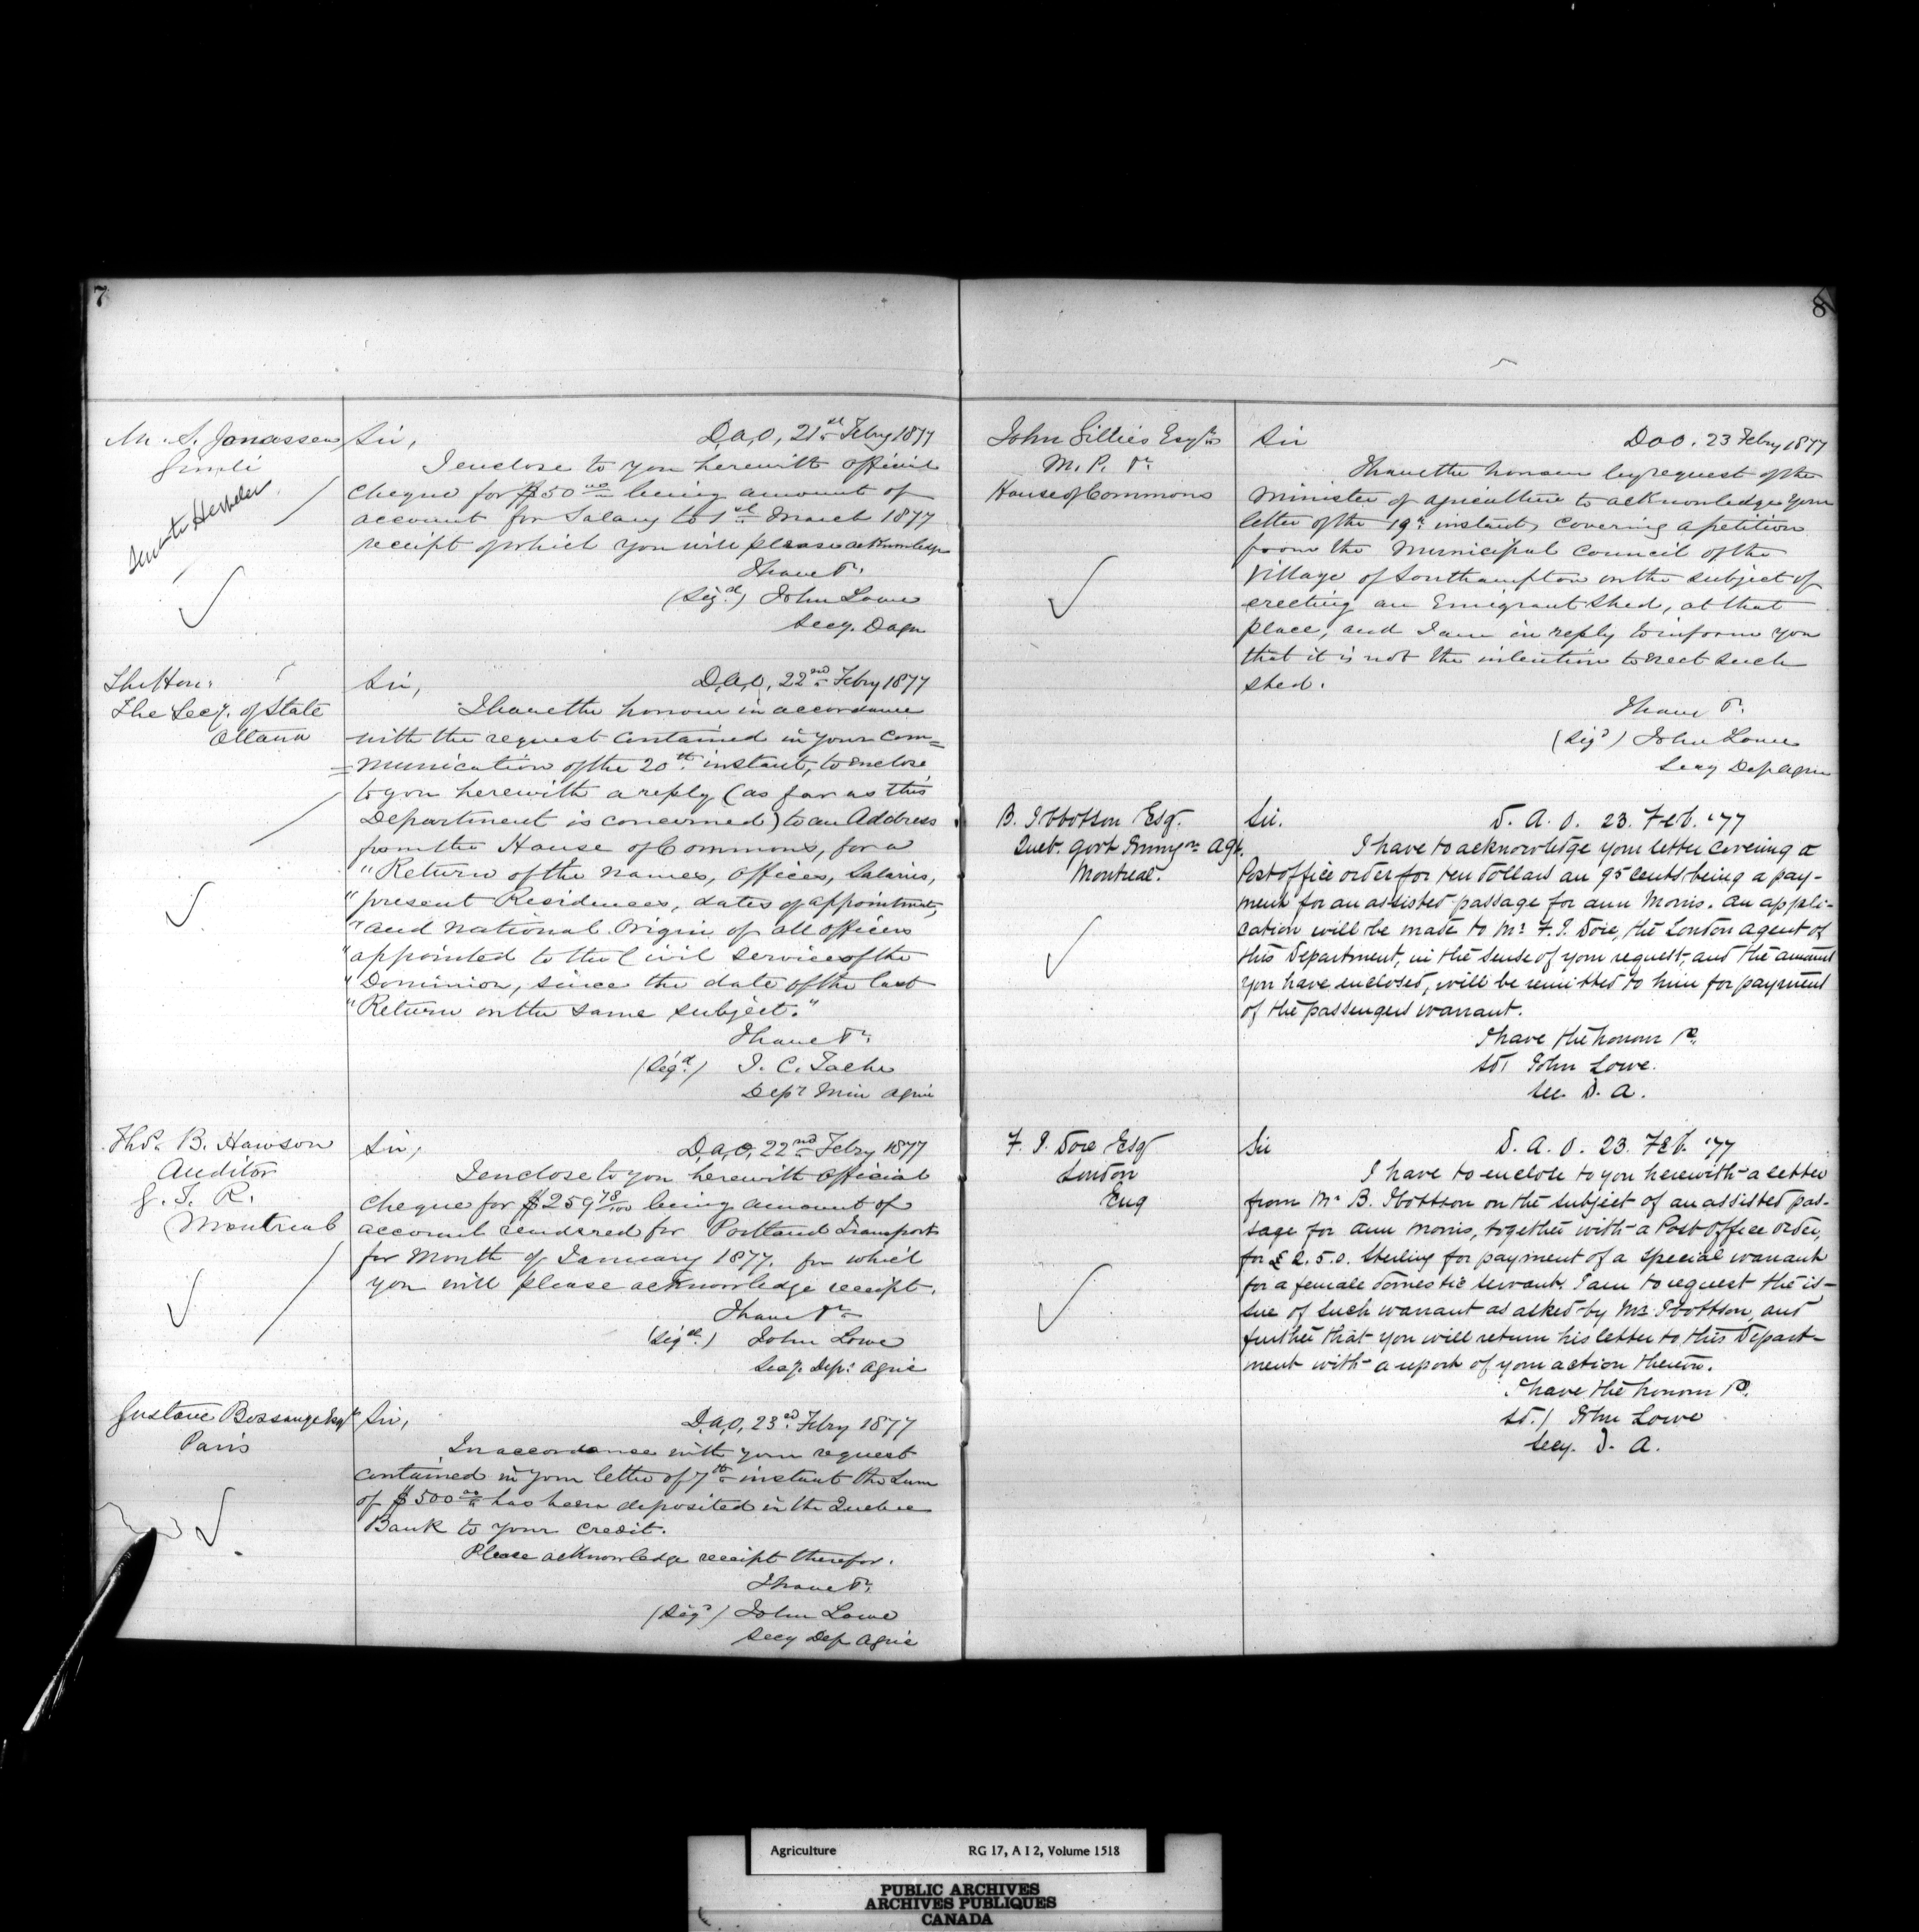 7
M. S. Jonassen
Gimli
Sent to Hespeler
Sir, D.A.O, 21st Febry 1877
I enclose to you herewith official
cheque for $50 00 being amount of
account for Salary to 1st March 1877
receipt of which you will please acknowledge
I have &c.
(Sigd) John Lowe
Secy. D Agn
The Hon:
The Secy. of State
Ottawa
Sir, D.A.O, 22nd Febry 1877
I have the honour in accordance
with the request contained in your com=
=munication of the 20th instant, to enclose
to you herewith a reply (as far as this
Department is concerned) to an Address
from the House of Commons, for a
"Return of the names, offices, Salaries,
"present Residences, dates of appointment,
"and National Origin of all officers
"appointed to the Civil Service of the
"Dominion, since the date of the last
"Return on the same subject."
I have &c.
(Sigd.) J. C. Tache
Depy Min Agric
Thos. B. Hawson
Auditor
G. T. R.
Montreal
Sir, D.A.O, 22nd Febry 1877
I enclose to you herewith official
cheque for $259 78/100 being amount of
account rendered for Portland Transport
for Month of January 1877. for which
you will please acknowledge receipt.
I have &c
(Sigd.) John Lowe
Secy. Dep: Agric
Gustave Bossange Esqr
Paris
Sir, D.A.O, 23rd Febry 1877
In accordance with your request
contained in your letter of 7th instant the Sum
of $500 00 has been deposited in the Quebec
Bank to your credit.
Please acknowledge receipt therefor.
I have &c.
(Sigd) John Lowe
Secy Dep Agric
8
John Gillies Esqre
M. P. &c.
House of Commons
Sir D.A.O. 23 Febry 1877
I have the honour by request of the
Minister of Agriculture to acknowledge your
letter of the 19th instant, covering a petition
from the Municipal Council of the
Village of Southampton on the subject of
erecting an Emigrant Shed, at that
place, and I am in reply to inform you
that it is not the intention to erect such
shed.
I have &c.
(Sigd) John Lowe
Secy Dep Agric
B. Ibbotson Esq.
Queb. Govt Immign Agt.
Montreal.
Sir. D. A. O. 23. Feb. '77
I have to acknowledge your letter covering a
Post office order for ten dollars an 95 cents being a pay-
ment for an assisted passage for Ann Morris. An appli-
cation will be made to Mr F. J. Dore, the London agent of
this Department, in the sense of your request, and the amount
you have enclosed, will be remitted to him for payment
of the passengers warrant.
I have the honour &c.
sd) John Lowe.
Sec. D. A.
F. J. Dore Esq
London
Eng
Sir D. A. O. 23. Feb. '77
I have to enclose to you herewith a letter
from Mr B. Ibottson on the subject of an assisted pas-
sage for Ann Morris, together with a Post Office order,
for £2. 5. 0. Sterling for payment of a special warrant
for a female domestic servant. I am to request the is-
sue of such warrant as asked by Mr Ibottson, and
further that you will return his letter to this Depart-
ment with a report of your action thereon.
I have the honour &c.
sd.) John Lowe
Secy. D. A.
Agriculture RG 17, A I 2, Volume 1518
PUBLIC ARCHIVES
ARCHIVES PUBLIQUES
CANADA